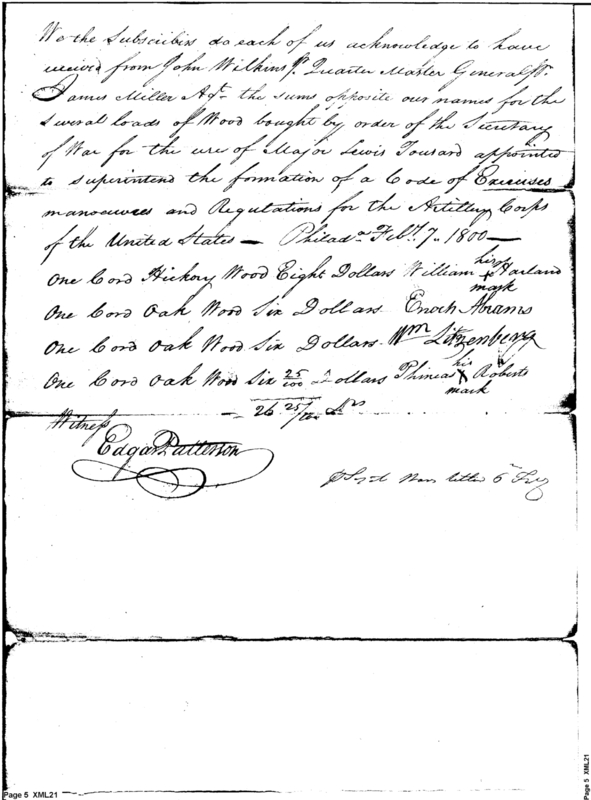 We the Subscribers do each of us acknowledge to have
received from John Wilkins Jr. Quarter Master General pr.
James Miller Agt. the sums opposite our names for the
Several loads of Wood bought by order of the Secretary
of War for the use of Major Lewis Tousard appointed
to superintend the formation of a Code of Exercises
manoeuvres and Regulations for the Artillery Corps
of the United States — Philada. Feby. 7.. 1800 —
One Cord Hickory Wood Eight Dollars William his X mark Harland
One Cord Oak Wood Six Dollars. Enoch Abrams
One Cord Oak Wood Six Dollars. Wm Litzenberg
One Cord Oak Wood Six 25/100 Dollars Phineas his X mark Roberts
26 25/100 Drs
Witness
Edgar Patterson
War letter 6
Page 5 XML21
Page 5 XML21